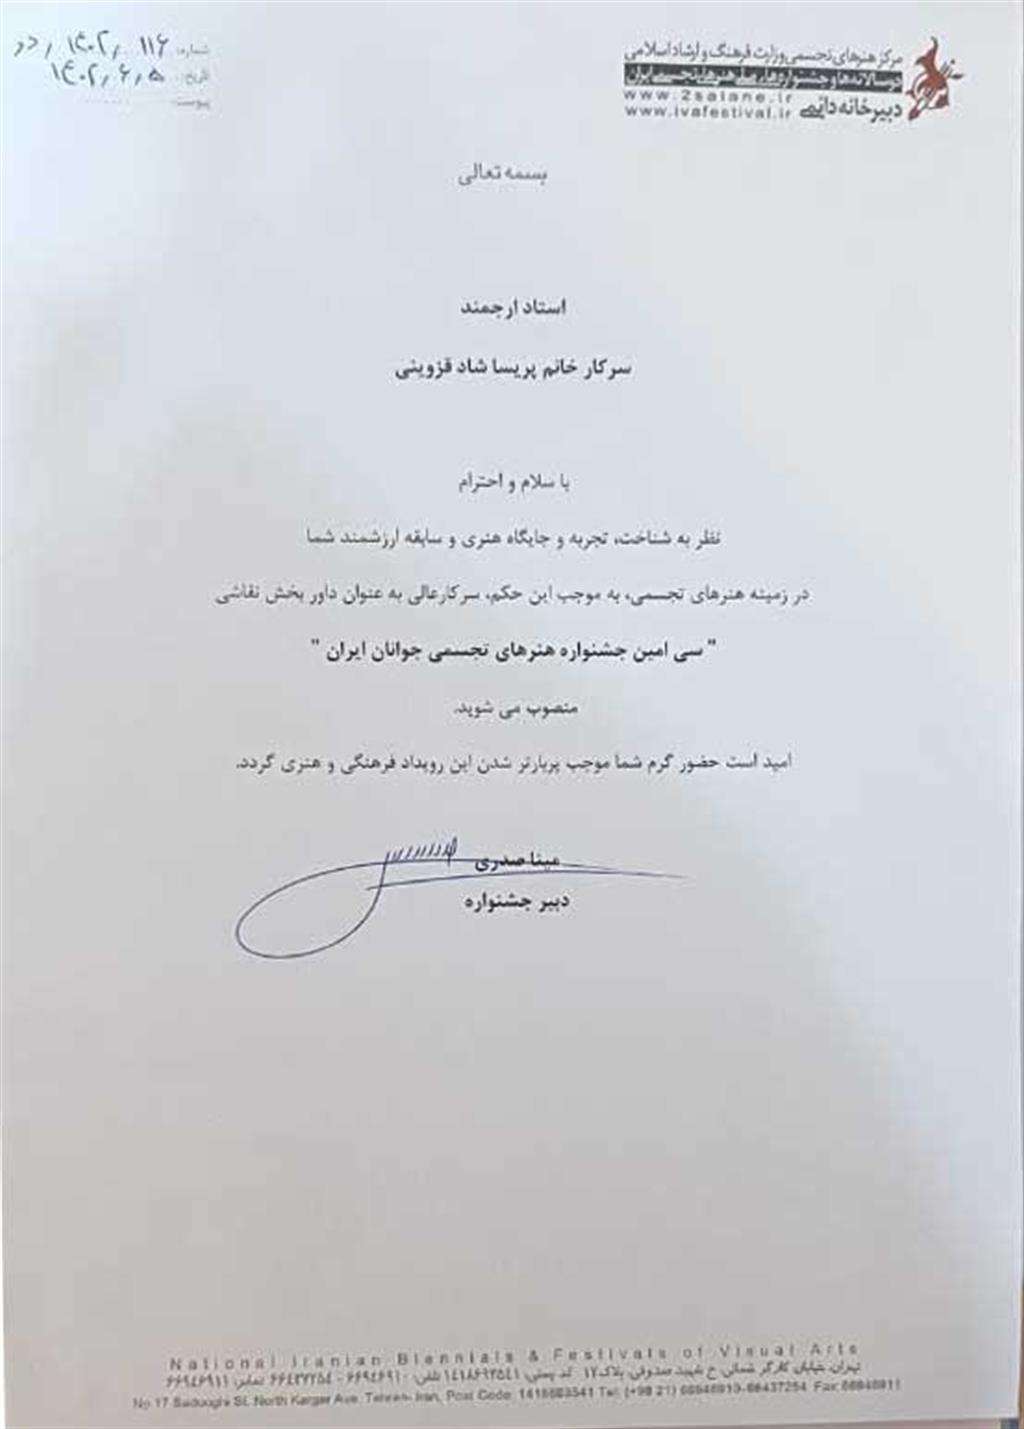 مرکز هنرهای تجسمی وزارت فرهنگ و ارشاد اسلامی
دوسالانه‌ها و جشنواره‌های ملی هنرهای تجسمی ایران
www.2salane.ir
دبیرخانه دائمی
www.ivafestival.ir
شماره: ۱۱۶ / ۱۴۰۲ / دو
تاریخ: ۱۴۰۲/۶/۵
پیوست:
بسمه تعالی
استاد ارجمند
سرکار خانم پریسا شاد قزوینی
با سلام و احترام
نظر به شناخت، تجربه و جایگاه هنری و سابقه ارزشمند شما
در زمینه هنرهای تجسمی، به موجب این حکم، سرکارعالی به عنوان داور بخش نقاشی
" سی امین جشنواره هنرهای تجسمی جوانان ایران "
منصوب می شوید.
امید است حضور گرم شما موجب پربارتر شدن این رویداد فرهنگی و هنری گردد.
مینا صدری
دبیر جشنواره
National Iranian Biennials & Festivals of Visual Arts
تهران، خیابان کارگر شمالی، خ شهید صدوقی، پلاک ۱۷ کد پستی: ۱۴۱۸۶۹۳۵۴۱ تلفن: ۶۶۹۴۶۹۱۰ - ۶۶۴۳۷۲۵۴ نمابر: ۶۶۹۴۶۹۱۱
No 17 Sadooghi St. North Kargar Ave. Tehran- Iran, Post Code: Tel: (+98 21) Fax: 66946911